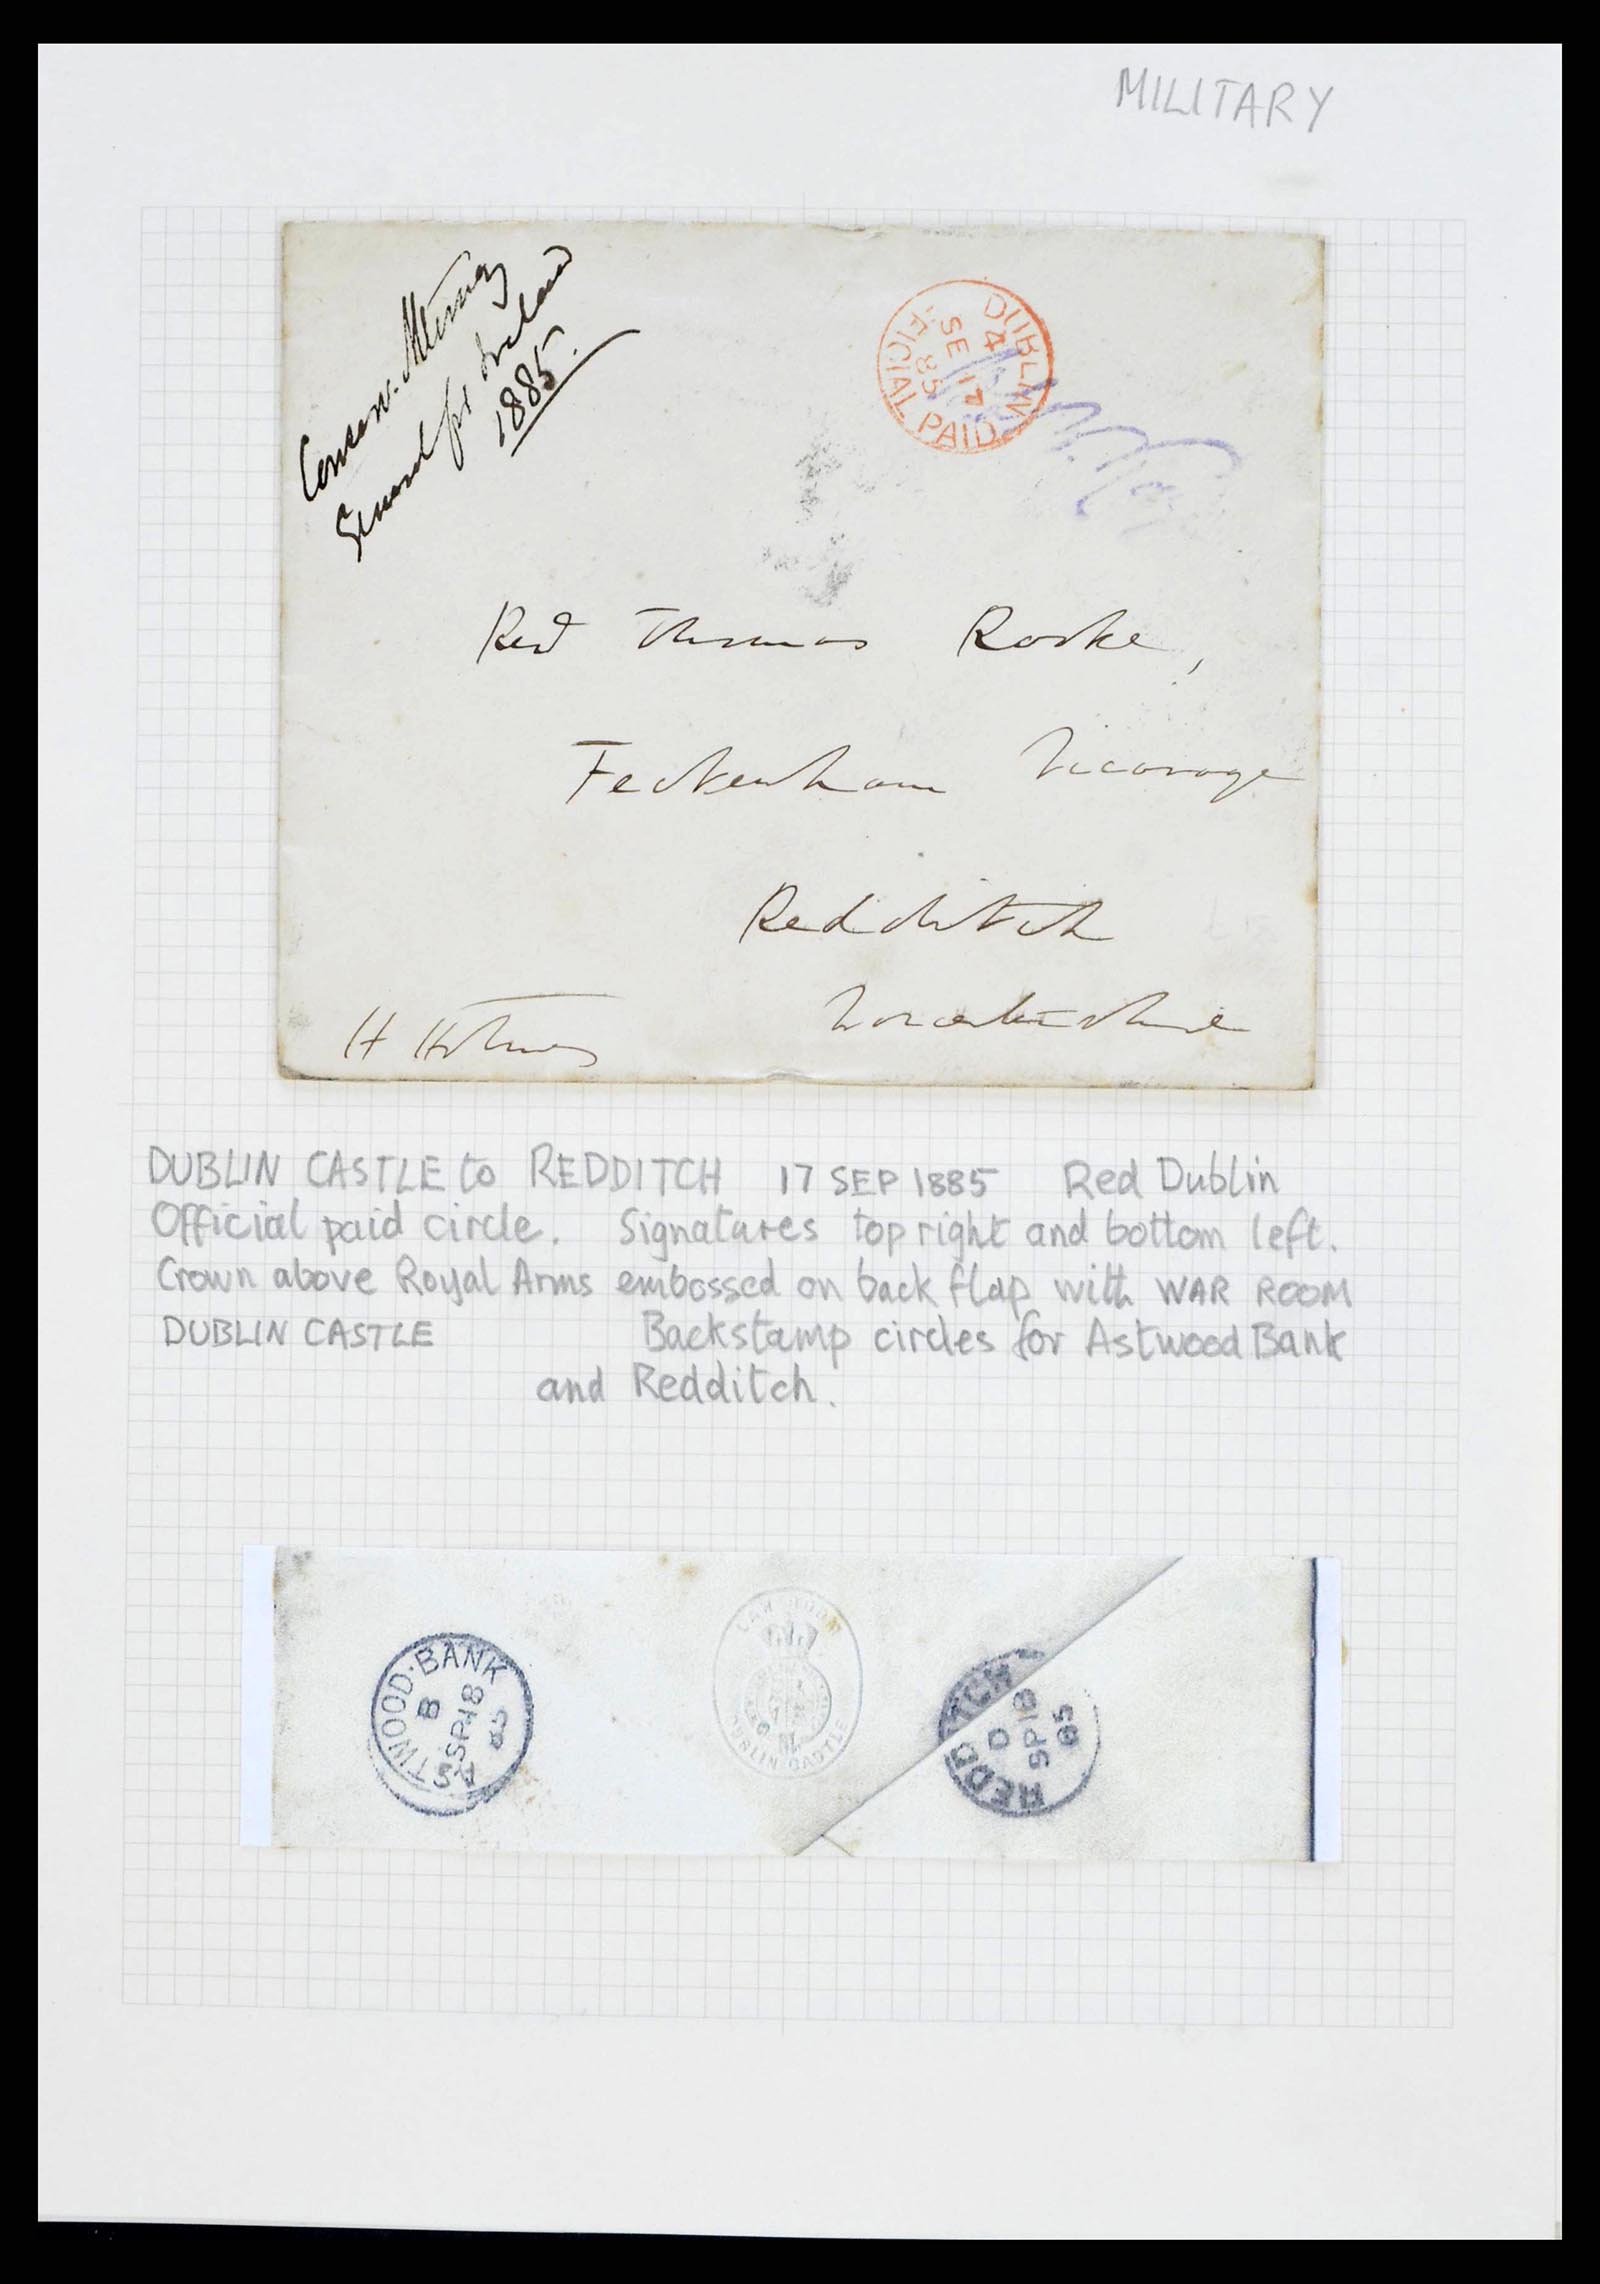 MILITARY
Conserv. Attorney
General for Ireland
1885.
DUBLIN
4
SE 17
85
FICIAL PAID
Revd Thomas Rooke,
Feckenham Vicarage
Redditch
Worcestershire
H Holmes
DUBLIN CASTLE to REDDITCH 17 SEP 1885 Red Dublin
Official paid circle. Signatures top right and bottom left.
Crown above Royal Arms embossed on back flap with WAR ROOM
DUBLIN CASTLE Backstamp circles for Astwood Bank
and Redditch.
ASTWOOD·BANK
B
SP 18
85
WAR ROOM
DUBLIN CASTLE
REDDITCH
D
SP 18
85